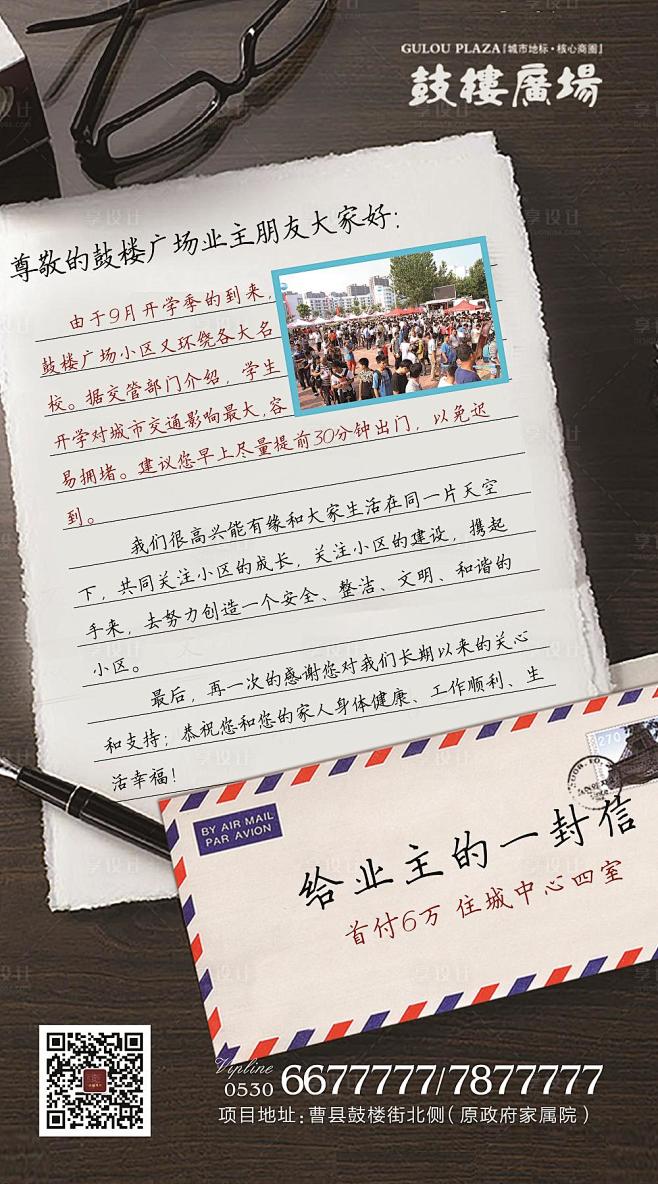 GULOU PLAZA「城市地标·核心商圈」
鼓樓廣場
尊敬的鼓楼广场业主朋友大家好：
由于9月开学季的到来，
鼓楼广场小区又环绕各大名
校。据交管部门介绍，学生
开学对城市交通影响最大，容
易拥堵。建议您早上尽量提前30分钟出门，以免迟
到。
我们很高兴能有缘和大家生活在同一片天空
下，共同关注小区的成长，关注小区的建设，携起
手来，去努力创造一个安全、整洁、文明、和谐的
小区。
最后，再一次的感谢您对我们长期以来的关心
和支持；恭祝您和您的家人身体健康、工作顺利、生
活幸福！
270
BY AIR MAIL
PAR AVION
给业主的一封信
首付6万 住城中心四室
Vipline
0530 6677777/7877777
项目地址：曹县鼓楼街北侧（原政府家属院）
享设计